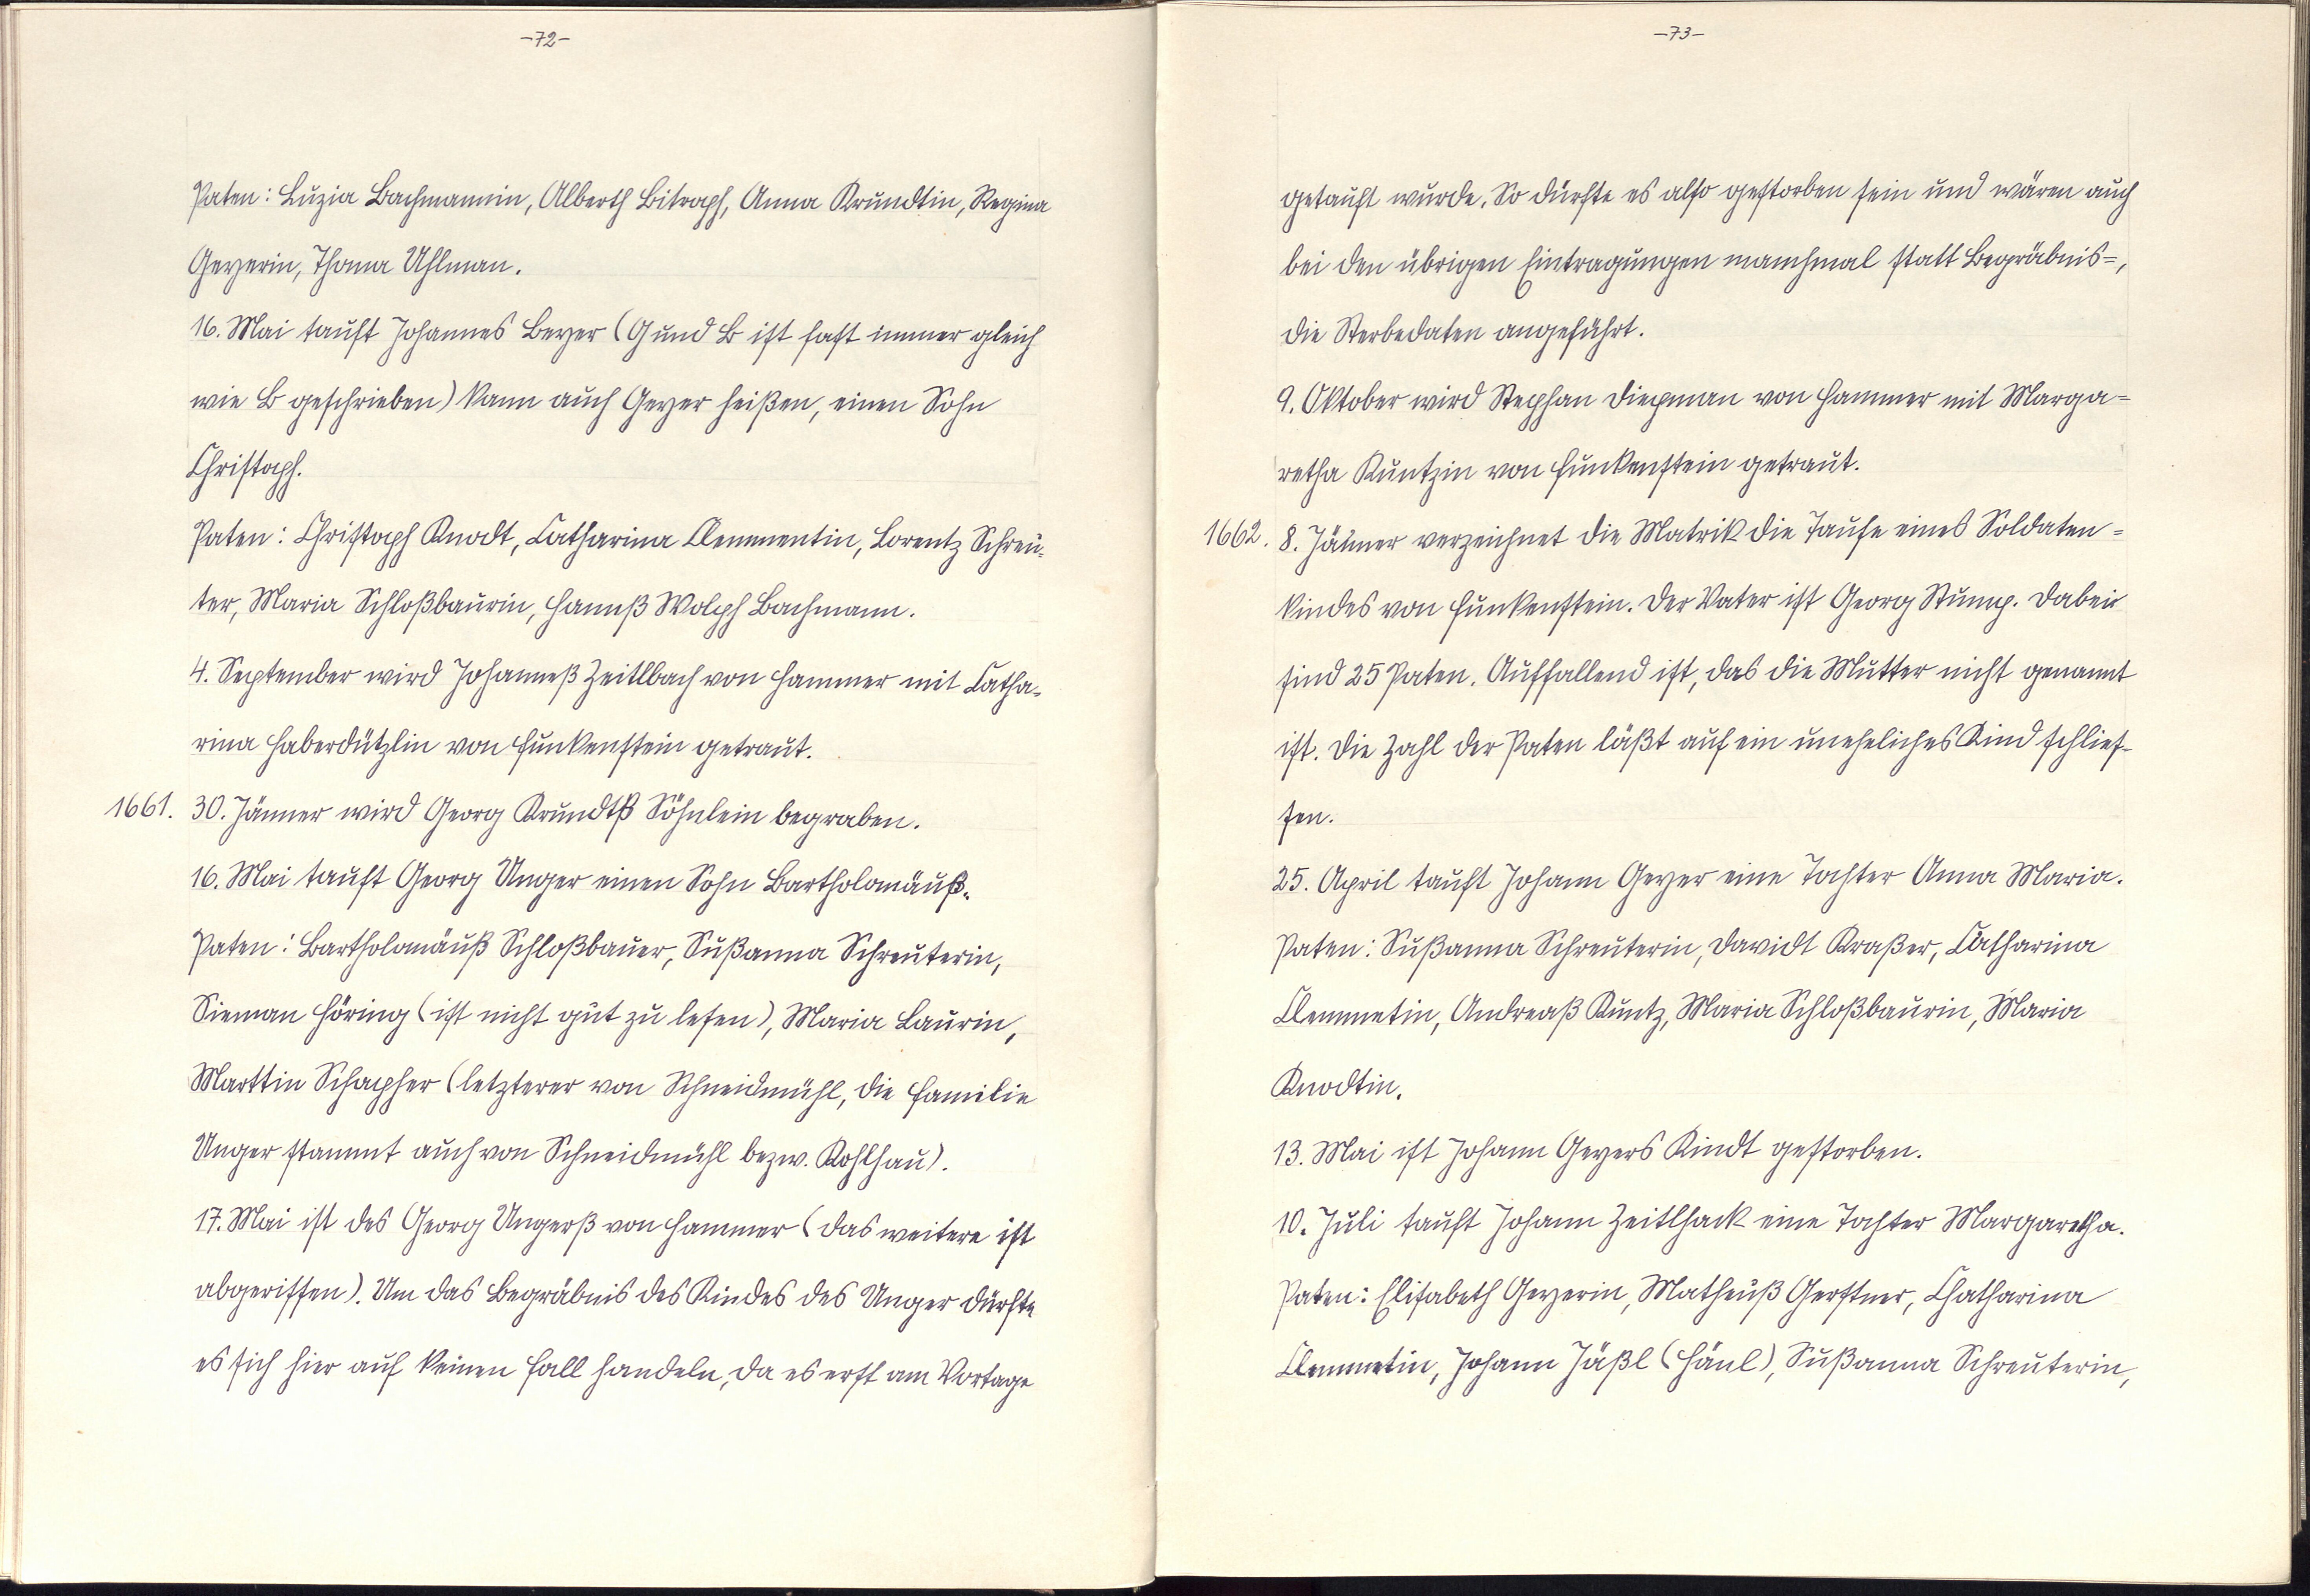 -72-
Paten: Luzia Bachmannin, Alberth Bitroph, Anna Krundtin, Regina
Geyerin, Thoma Uhlman.
16. Mai tauft Johannes Beyer (G und B ist fast immer gleich
wie B geschrieben) kann auch Geyer heißen, einen Sohn
Christoph.
Paten: Christoph Knodt, Catharina Clemmentin, Lorentz Schreu-
ter, Maria Schloßbaurin, Hannß Wolph Bachmann.
4. September wird Johanneß Zeitlbach von Hammer mit Catha-
rina Haberdützlin von Funkenstein getraut.
1661. 30. Jänner wird Georg Krundtß Söhnlein begraben.
16. Mai tauft Georg Unger einen Sohn Bartholomäuß.
Paten: Bartholomäuß Schloßbauer, Sußanna Schreuterin,
Sieman Höring (ist nicht gut zu lesen), Maria Laurin,
Marttin Schapher (letzterer von Schneidmühl, die Familie
Unger stammt auch von Schneidmühl bezw. Kohlhau).
17. Mai ist des Georg Ungerß von Hammer (das weitere ist
abgerissen). Um das Begräbnis des Kindes des Unger dürfte
es sich hier auf keinen Fall handeln, da es erst am Vortage
-73-
getauft wurde. So dürfte es also gestorben sein und wären auch
bei den übrigen Eintragungen manchmal statt Begräbnis=,
die Sterbedaten angeführt.
9. Oktober wird Stephan Diepman von Hammer mit Marga=
retha Kuntzin von Funkenstein getraut.
1662. 8. Jänner verzeichnet die Matrik die Taufe eines Soldaten=
kindes von Funkenstein. Der Vater ist Georg Stump. Dabei
sind 25 Paten. Auffallend ist, das die Mutter nicht genannt
ist. Die Zahl der Paten läßt auf ein uneheliches Kind schlies-
sen.
25. April tauft Johann Geyer eine Tochter Anna Maria.
Paten: Sußanna Schreuterin, Davidt Kraßer, Catharina
Clemmetin, Andreaß Kuntz, Maria Schloßbaurin, Maria
Knodtin.
13. Mai ist Johann Geyers Kindt gestorben.
10. Juli tauft Johann Zeitlhack eine Tochter Margaretha.
Paten: Elisabeth Geyerin, Matheuß Gerstner, Chatharina
Clemmetin, Johann Jäßl (Hänl), Sußanna Schreuterin,